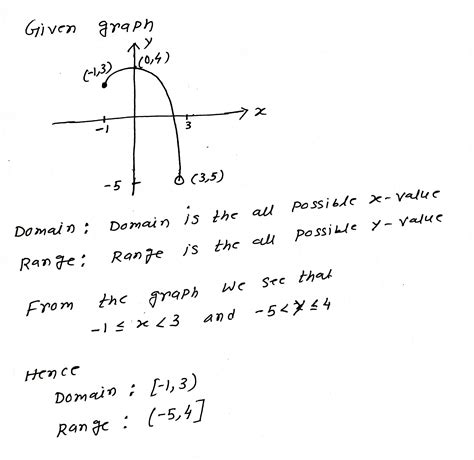 Given graph
y
(-1,3)
(0,4)
x
-1
3
-5
(3,5)
Domain : Domain is the all possible x-value
Range : Range is the all possible y-value
From the graph we see that
-1 ≤ x < 3 and -5 < y ≤ 4
Hence
Domain : [-1, 3)
Range : (-5, 4]